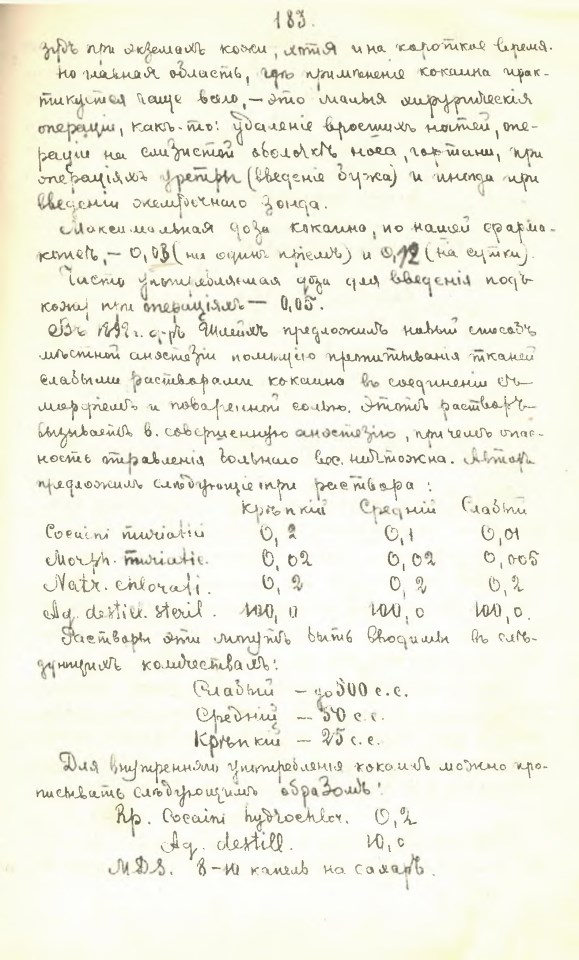 183.
зудъ при экземахъ кожи, хотя и на короткое время.
Но главная область, гдѣ примѣненіе кокаина прак-
тикуется чаще всего, — это малыя хирургическія
операціи, какъ-то: удаленіе вросшихъ ногтей, опе-
раціи на слизистой оболочкѣ носа, гортани, при
операціяхъ уретры (введеніе бужа) и иногда при
введеніи желудочнаго зонда.
Максимальная доза кокаина, по нашей фарма-
копеѣ, — 0,03 (на одинъ пріемъ) и 0,12 (на сутки).
Чисто употребляемая доза для введенія подъ
кожу при операціяхъ — 0,05.
Въ г. д-ръ Шлейхъ предложилъ новый способъ
мѣстной анэстезіи помощію пропитыванія тканей
слабыми растворами кокаина въ соединеніи съ
морфіемъ и поваренной солью. Этотъ растворъ
вызываетъ в. совершенную анэстезію, при чемъ опас-
ность отравленія больного вес. ничтожна. Авторъ
предложилъ слѣдующіе три раствора:
Крѣпкій Средній Слабый
Cocaini muriatici 0,2 0,1 0,01
Morph. muriatic. 0,02 0,02 0,005
Natr. chlorati. 0,2 0,2 0,2
Aq. destill. steril. 100,0 100,0 100,0.
Растворы эти могутъ быть вводимы въ слѣ-
дующихъ количествахъ:
Слабый — до 500 c.c.
Средній — 50 c.c.
Крѣпкій — 25 c.c.
Для внутренняго употребленія кокаинъ можно про-
писывать слѣдующимъ образомъ:
Rp. Cocaini hydrochlor. 0,2
Aq. destill. 10,0
M.D.S. 8-10 капель на сахаръ.